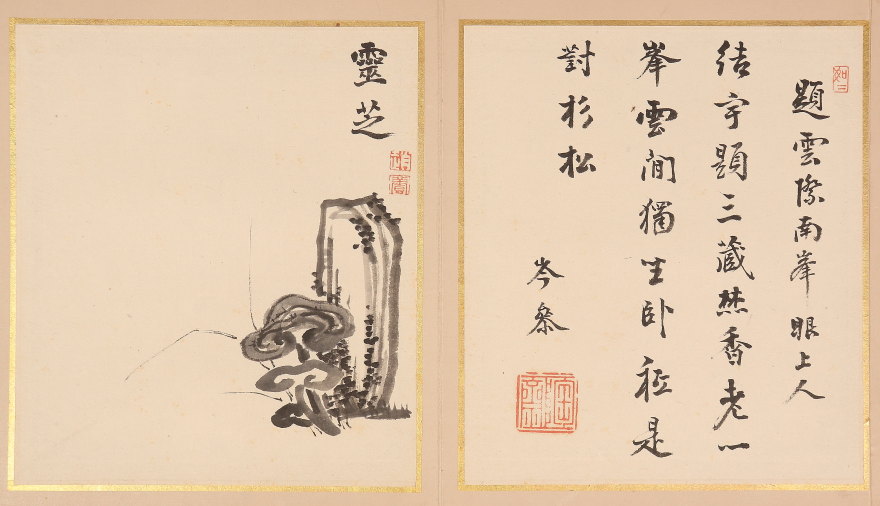 題雲際南峯眼上人
結宇題三藏焚香老一
峯雲間獨坐臥祗是
對杉松
岑參
靈芝